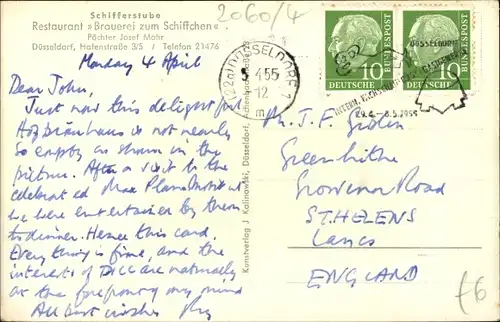 Schifferstube
Restaurant »Brauerei zum Schiffchen«
Pächter Josef Mohr
Düsseldorf, Hafenstraße 3/5 / Telefon 21476
2060/4
Monday 4 April
Dear John,
Just now this delightful
Hofbräuhaus is not nearly
so empty as shown in the
picture. After a visit to the
celebrated Max Planck
we were entertained by them
to dinner. Hence this card.
Every thing is fine, and the
interests of are naturally
at the forefront of my mind
All best wishes
Kunstverlag J. Kalinowski, Düsseldorf,
(22a) DÜSSELDORF
4.55
12
m
10
DEUTSCHE
BUNDESPOST
10
DEUTSCHE
BUNDESPOST
DÜSSELDORF
1955
J. F.
Greenhithe
Grosvenor Road
ST. HELENS
Lancs
ENGLAND
£6